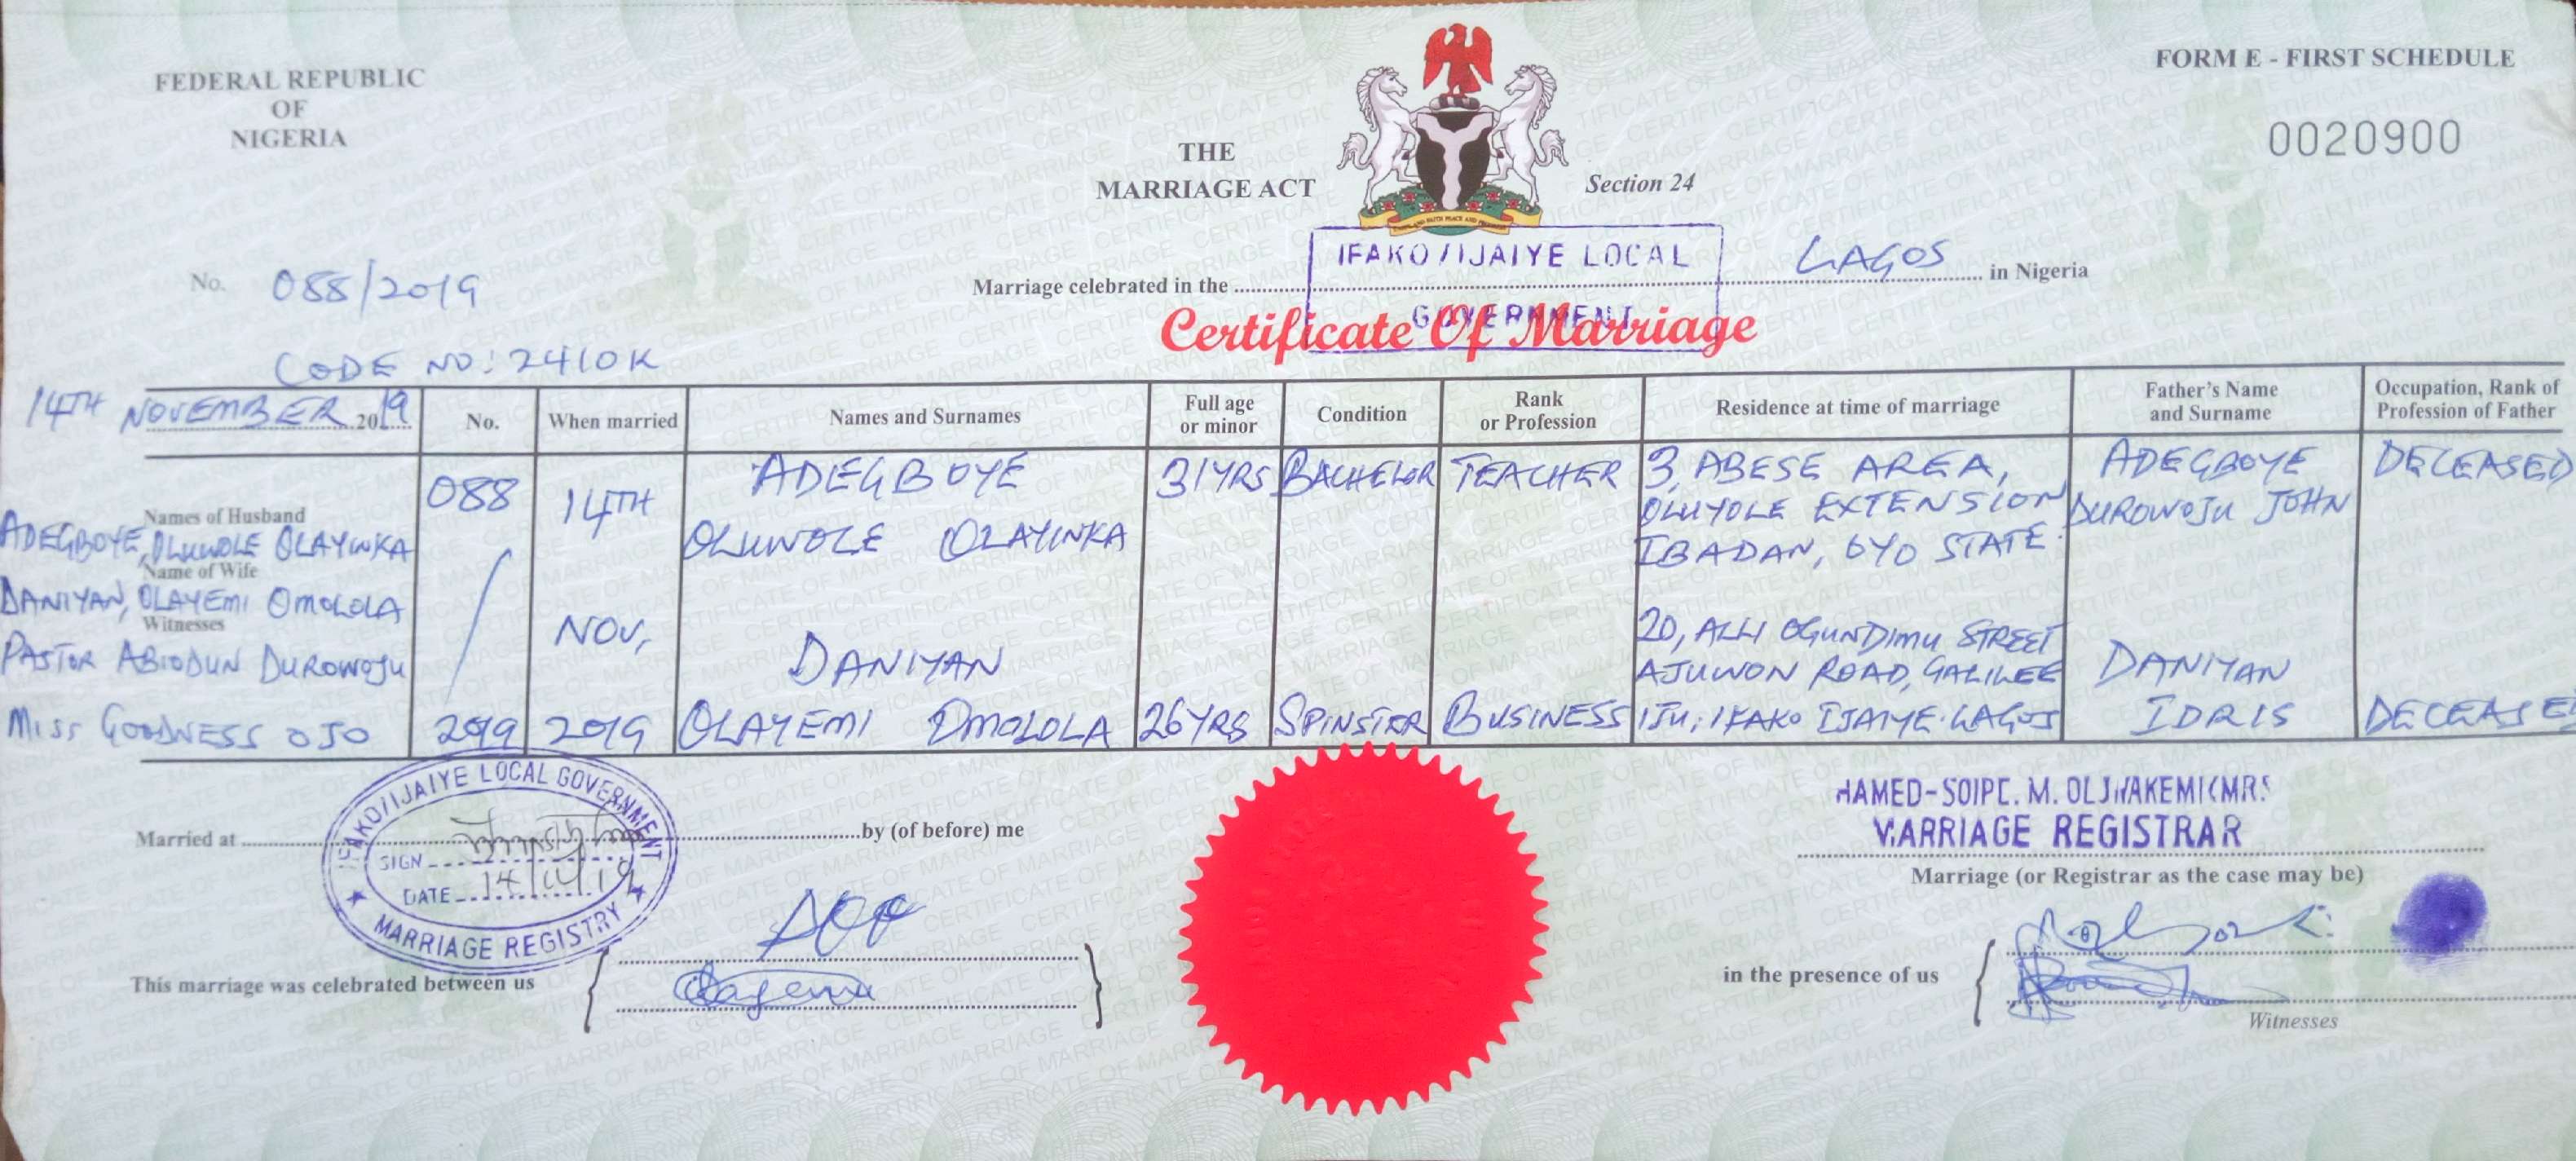 FEDERAL REPUBLIC
OF
NIGERIA
FORM E - FIRST SCHEDULE
0020900
THE
MARRIAGE ACT
Section 24
No. 088/2019
Marriage celebrated in the IFAKO/IJAIYE LOCAL GOVERNMENT LAGOS in Nigeria
Certificate Of Marriage
CODE NO: 2410K
14TH NOVEMBER 2019
No.
When married
Names and Surnames
Full age
or minor
Condition
Rank
or Profession
Residence at time of marriage
Father's Name
and Surname
Occupation, Rank of
Profession of Father
Names of Husband
ADEGBOYE, OLUWOLE OLAYINKA
Name of Wife
DANIYAN, OLAYEMI OMOLOLA
Witnesses
PASTOR ABIODUN DUROWOJU
MISS GOODNESS OJO
088
/
2019
14TH
NOV,
2019
ADEGBOYE
OLUWOLE OLAYINKA
31YRS
BACHELOR
TEACHER
3, ABESE AREA,
OLUYOLE EXTENSION
IBADAN, OYO STATE.
ADEGBOYE
DUROWOJU JOHN
DECEASED
DANIYAN
OLAYEMI OMOLOLA
26YRS
SPINSTER
BUSINESS
20, ALLI OGUNDIMU STREET
AJUWON ROAD, GALILEE
IJU, IFAKO IJAIYE. LAGOS
DANIYAN
IDRIS
DECEASED
Married at by (of before) me
IFAKO/IJAIYE LOCAL GOVERNMENT
SIGN
DATE 14/11/19
MARRIAGE REGISTRY
M. (MRS
MARRIAGE REGISTRAR
Marriage (or Registrar as the case may be)
This marriage was celebrated between us
in the presence of us
Witnesses